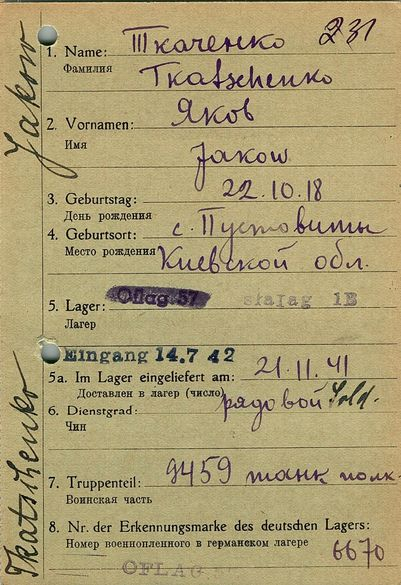 Jakow
Tkatschenko
231
1. Name: Ткаченко
Фамилия
Tkatschenko
2. Vornamen: Яков
Имя
Jakow
3. Geburtstag: 22.10.18
День рождения
4. Geburtsort: с. Пустовиты
Место рождения Киевской обл.
5. Lager: Oflag 57 stalag 1B
Лагер
Eingang 14.7 42
5a. Im Lager eingeliefert am: 21.11.41
Доставлен в лагер (число)
6. Dienstgrad: рядовой Sold.
Чин
7. Truppenteil: 9459 танк полк
Воинская часть
8. Nr. der Erkennungsmarke des deutschen Lagers:
Номер военнопленного в германском лагере 6670
OFLAG